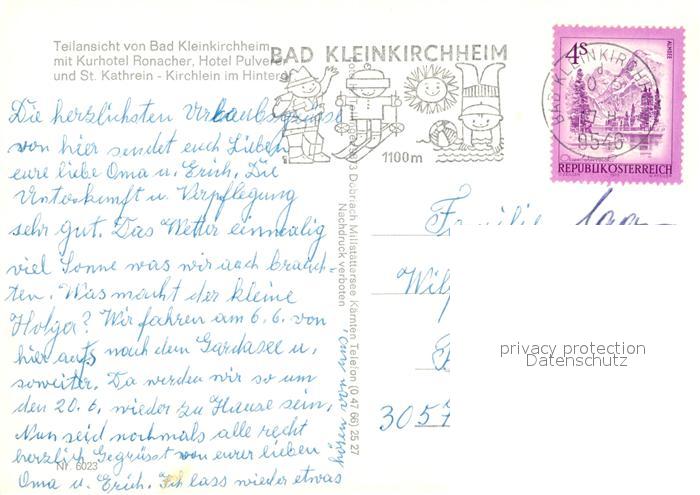 Teilansicht von Bad Kleinkirchheim
mit Kurhotel Ronacher, Hotel Pulverer
und St. Kathrein - Kirchlein im Hintergr
BAD KLEINKIRCHHEIM
1100m
4s
ALMSEE
REPUBLIK ÖSTERREICH
BAD KLEINKIRCHH
9546
Die herzlichsten Urlaubsgrüsse
von hier sendet euch Lieben
eure liebe Oma u. Erich. Die
Unterkunft u. Verpflegung
sehr gut. Das Wetter einmalig
viel Sonne was wir auch brauch-
ten. Was macht der kleine
Holga? Wir fahren am 6.6. von
hier aufs nach dem Gardasee u.
soweiter. Da werden wir so um
den 20.6. wieder zu Hause sein.
Nun seid nochmals alle recht
herzlich Gegrüsst von eurer lieben
Oma u. Erich. Ich lass wieder etwas
von mir hören.
Nr. 6023
73 Döbriach Millstättersee Kärnten Telefon (0 47 66) 25 27
Nachdruck verboten
Familie
Wil
3057
privacy protection
Datenschutz